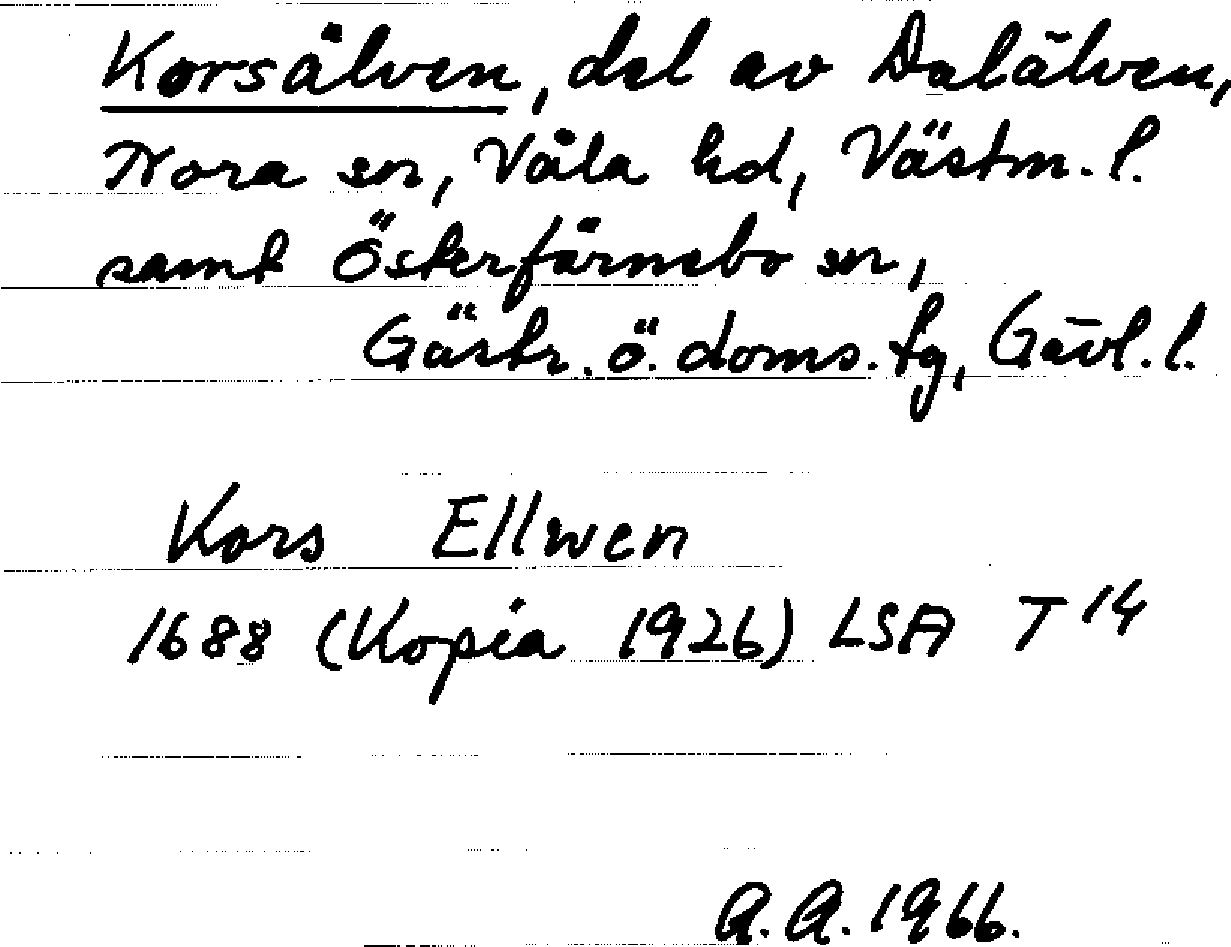 Korsälven, del av Dalälven,
Nora sn, Våla hd, Västm. l.
samt Österfärnebo sn,
Gästr. ö. doms. tg, Gävl. l.
Kors Ellwen
1688 (Kopia 1926) LSA T 14
A. A. 1966.